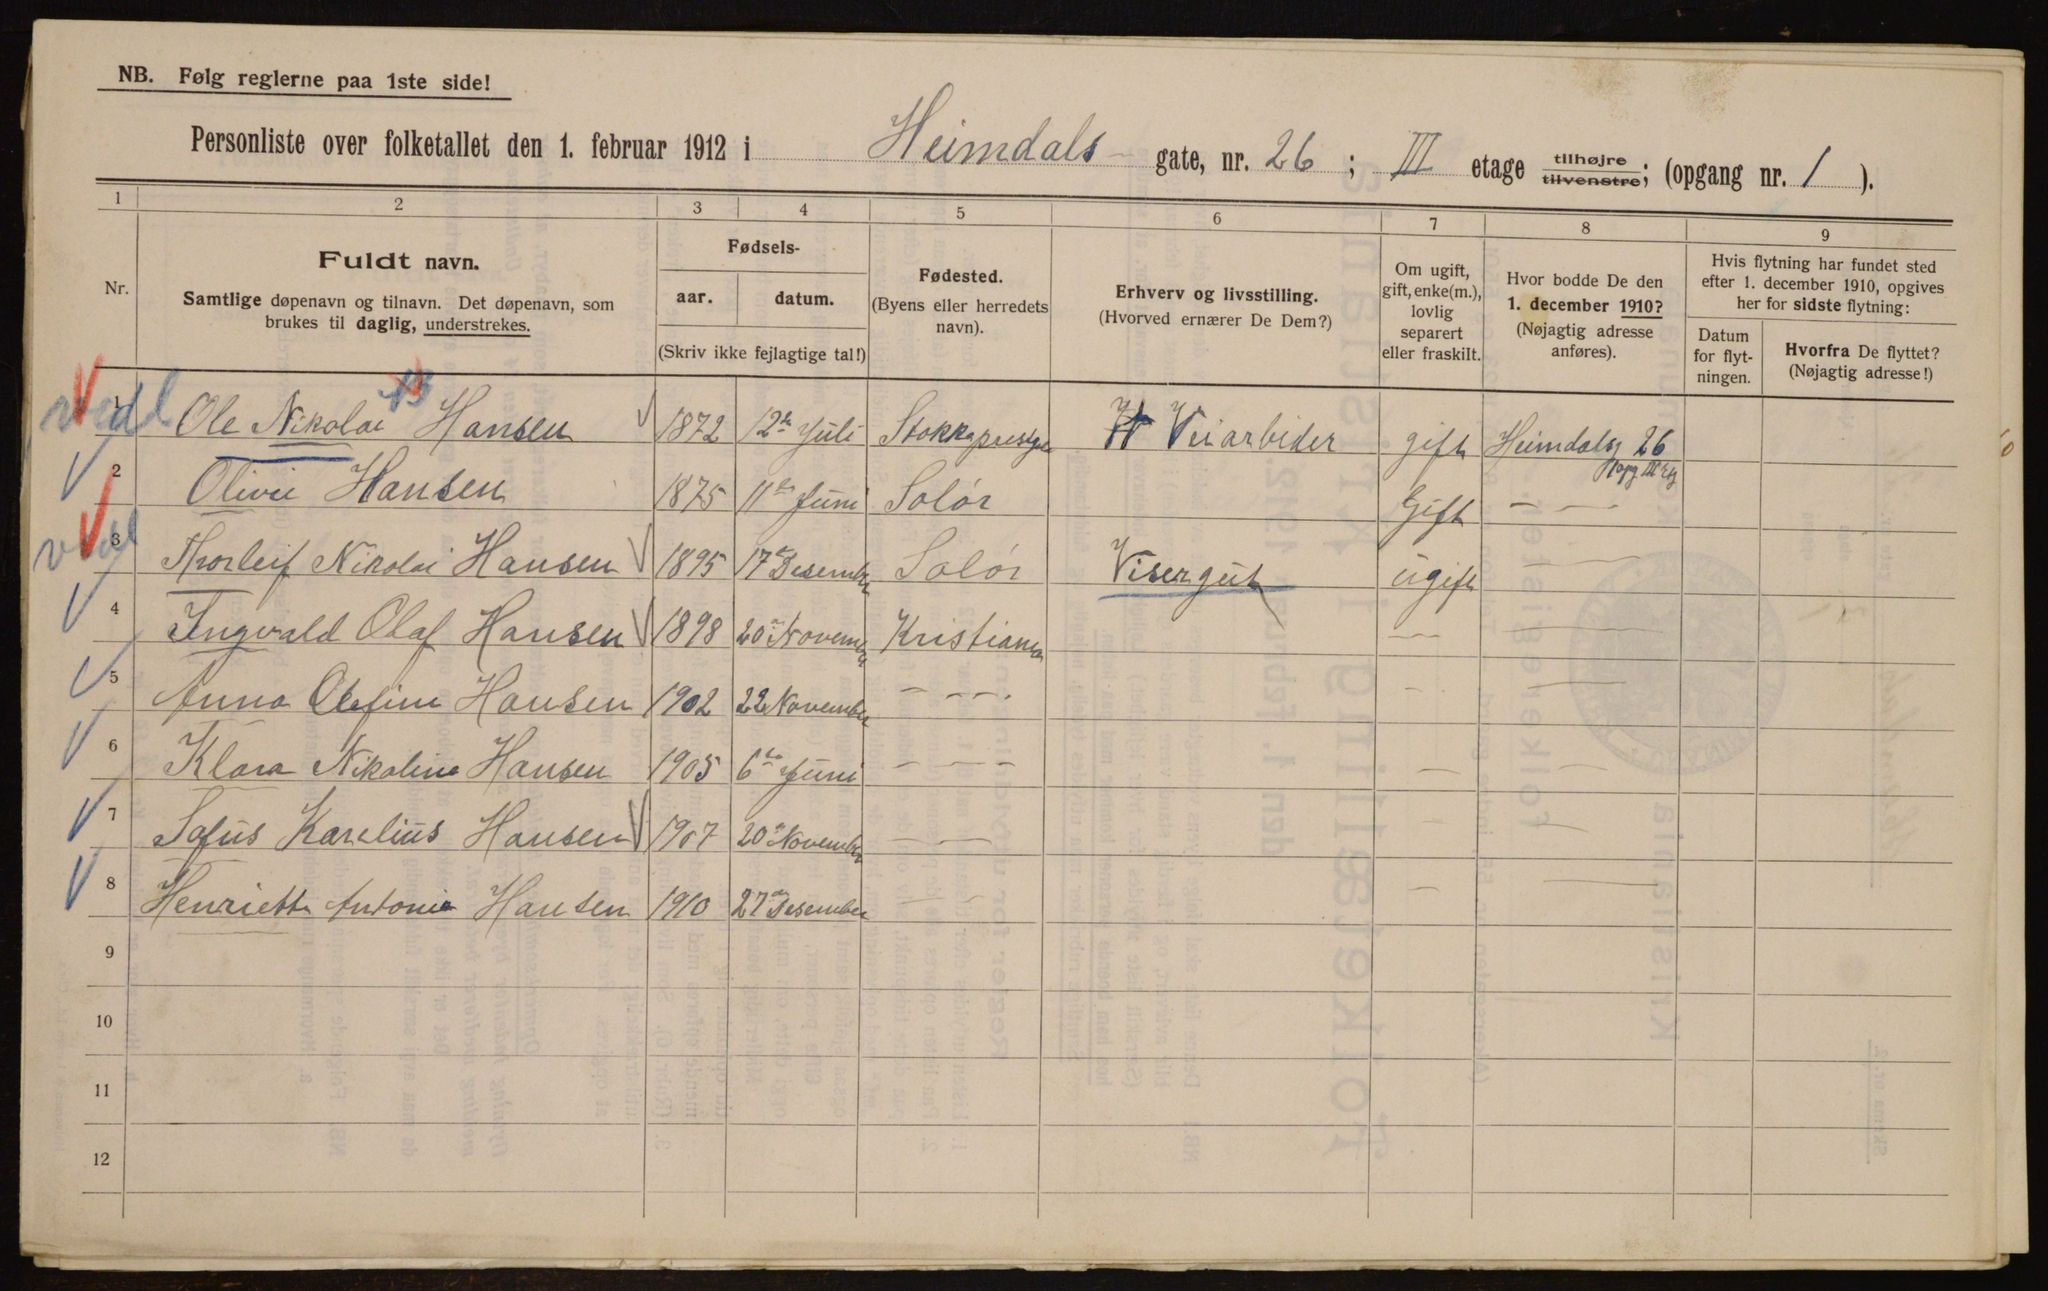 NB. Følg reglerne paa 1ste side!
Personliste over folketallet den 1. februar 1912 i Heimdals gate, nr. 26; III etage tilhøjre tilvenstre; (opgang nr. 1).
1 2 3 4 5 6 7 8 9
Nr.
Fuldt navn.
Samtlige døpenavn og tilnavn. Det døpenavn, som
brukes til daglig, understrekes.
Fødsels-
aar. datum.
(Skriv ikke fejlagtige tal!)
Fødested.
(Byens eller herredets
navn).
Erhverv og livsstilling.
(Hvorved ernærer De Dem?)
Om ugift,
gift, enke(m.),
lovlig
separert
eller fraskilt.
Hvor bodde De den
1. december 1910?
(Nøjagtig adresse
anføres).
Hvis flytning har fundet sted
efter 1. december 1910, opgives
her for sidste flytning:
Datum
for flyt-
ningen.
Hvorfra De flyttet?
(Nøjagtig adresse!)
1 Ole Nikolai Hansen 1872 12te Juli Veiarbeder gift Heimdalsg 26
2 Olivie Hansen 1875 11te Juni Solør Gift — — —
3 Thorleif Nikolai Hansen 1895 17 Desember Solør Visergut ugift —
4 Ingvald Olaf Hansen 1898 20 November Kristiania — —
5 Anna Olefine Hansen 1902 22 November — — — - —
6 Klara Nikoline Hansen 1905 6te Juni — — — — —
7 Sofus Karelius Hansen 1907 20 November — — - —
8 Henriette Antonie Hansen 1910 27 Desember — - — —
9
10
11
12